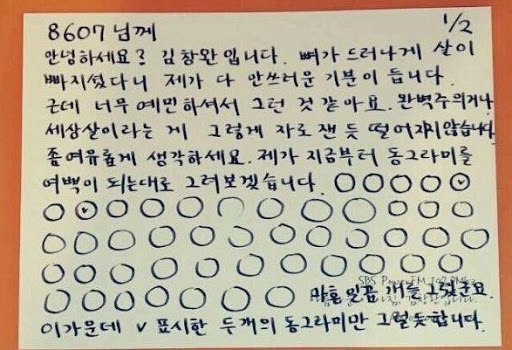 8607님께 1/2
안녕하세요? 김창완입니다. 뼈가 드러나게 살이
빠지셨다니 제가 다 안쓰러운 기분이 듭니다.
근데 너무 예민하셔서 그런 것 같아요. 완벽주의거나
세상살이라는 게 그렇게 자로 잰 듯 떨어지지 않습니다
좀 여유롭게 생각하세요. 제가 지금부터 동그라미를
여백이 되는대로 그려보겠습니다.
SBS Power FM
마흔 일곱 개를 그렸군요.
이 가운데 v 표시한 두 개의 동그라미만 그럴듯합니다.